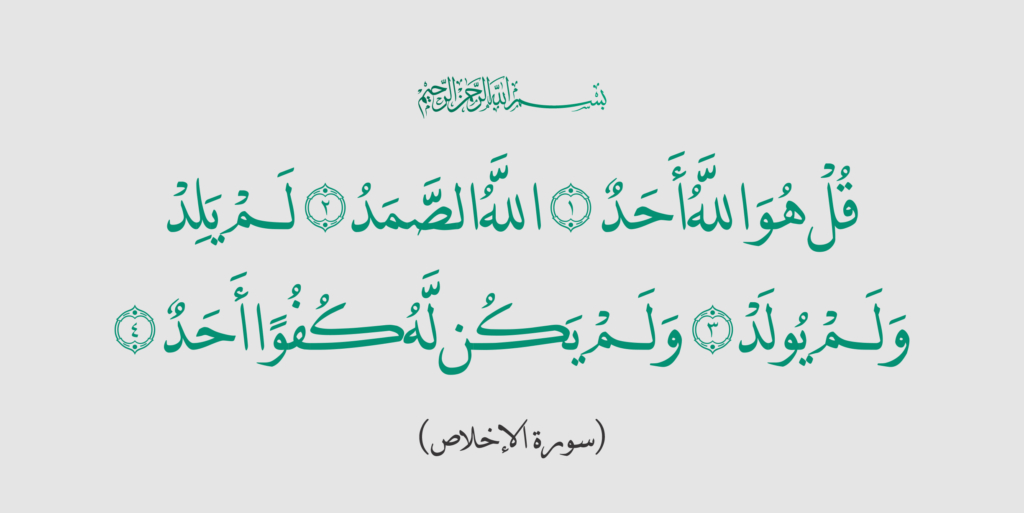 بِسْمِ اللَّهِ الرَّحْمَنِ الرَّحِيمِ
قُلْ هُوَ اللَّهُ أَحَدٌ ١ اللَّهُ الصَّمَدُ ٢ لَمْ يَلِدْ
وَلَمْ يُولَدْ ٣ وَلَمْ يَكُن لَّهُ كُفُوًا أَحَدٌ ٤
(سورة الإخلاص)